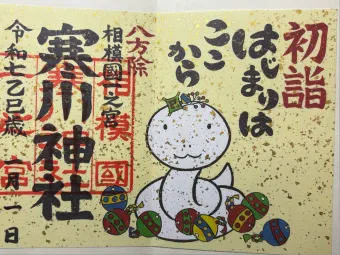 初詣
はじまりは
ここ
から
八方除
相模國一之宮
寒川神社
令和七乙巳歳 一月一日